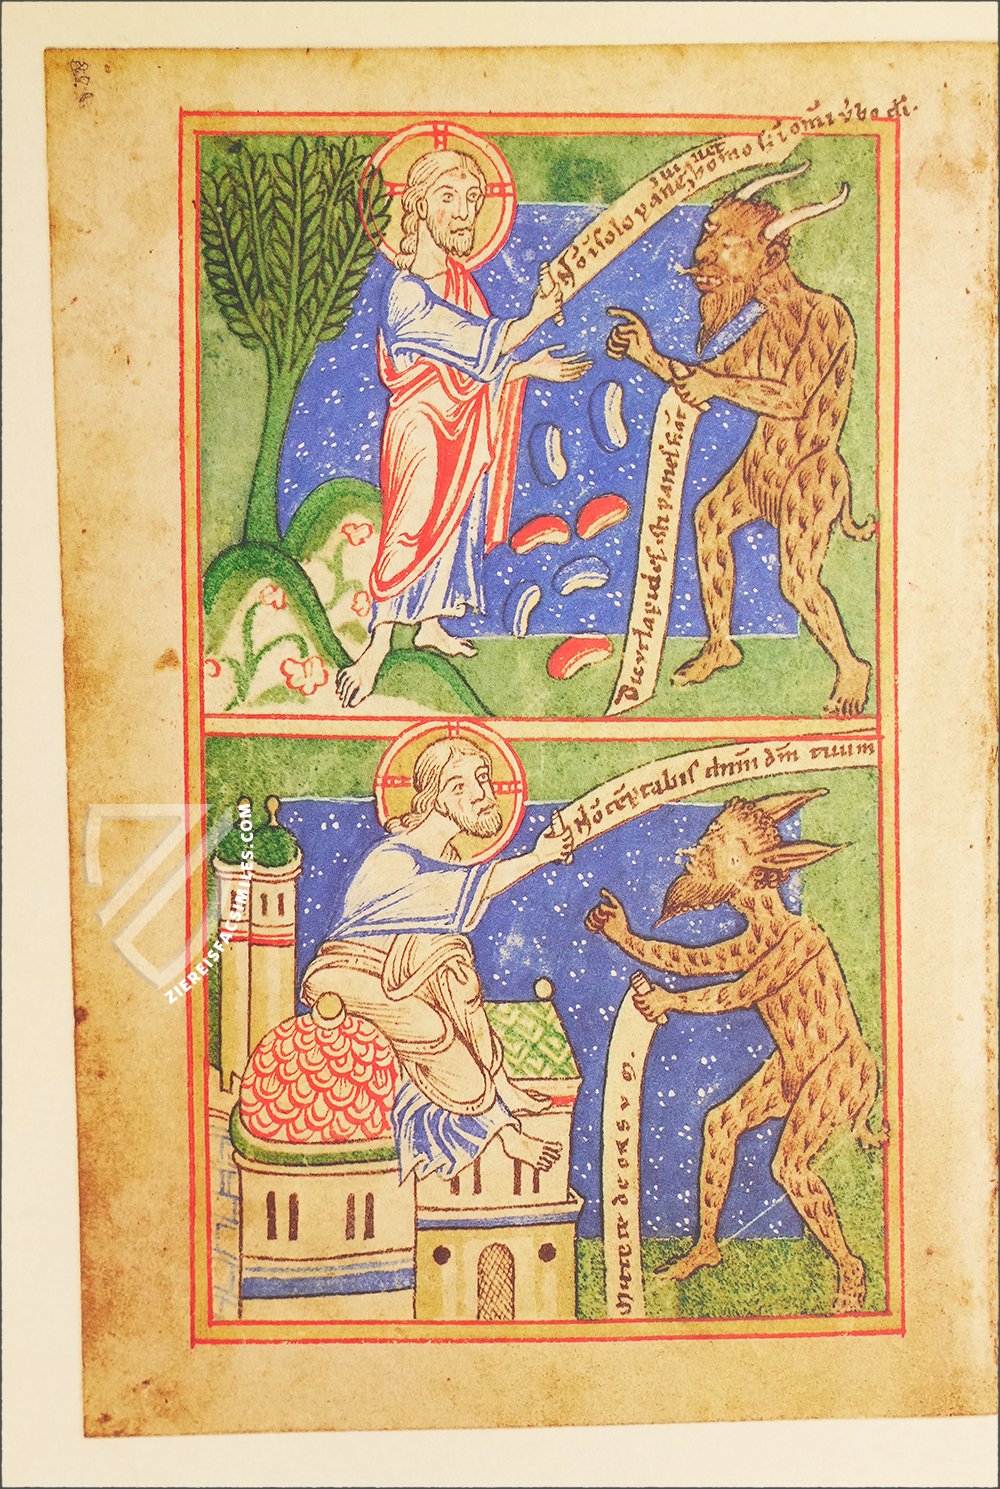 Nō ī solo pane uiuet homo s; ī omī ꝟbo dī.
Dic ut lapides isti panes fiāt
Nō tēptabis dnm dm̄ tuum
Mitte deorsum.
ZIEREISFACSIMILES.COM